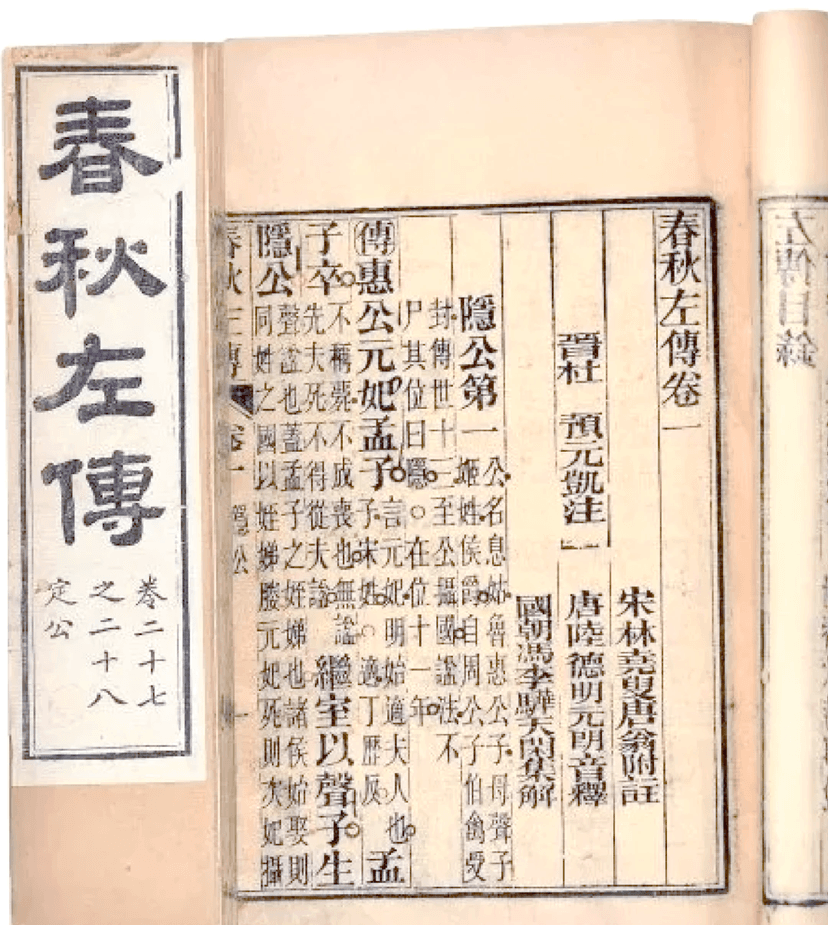 春秋左傳
卷二十七
之二十八
定公
左傳目錄
春秋左傳卷一
宋林堯叟唐翁附註
晉杜　預元凱注
唐陸德明元朗音釋
國朝馮李驊天閑集解
隱公第一
公名息姑魯惠公子母聲子
姬姓侯爵自周公子伯禽受
封傳世十三至公攝國諡法不
尸其位曰隱○在位十一年
傳惠公元妃孟子
言元妃明始適夫人也
子宋姓○適丁歷反
孟
子卒
不稱薨不成喪也無諡
先夫死不得從夫諡
繼室以聲子生
隱公
聲諡也蓋孟子之姪娣也諸侯始娶則
同姓之國以姪娣媵元妃死則次妃攝
春秋左傳　卷一　隱公　一